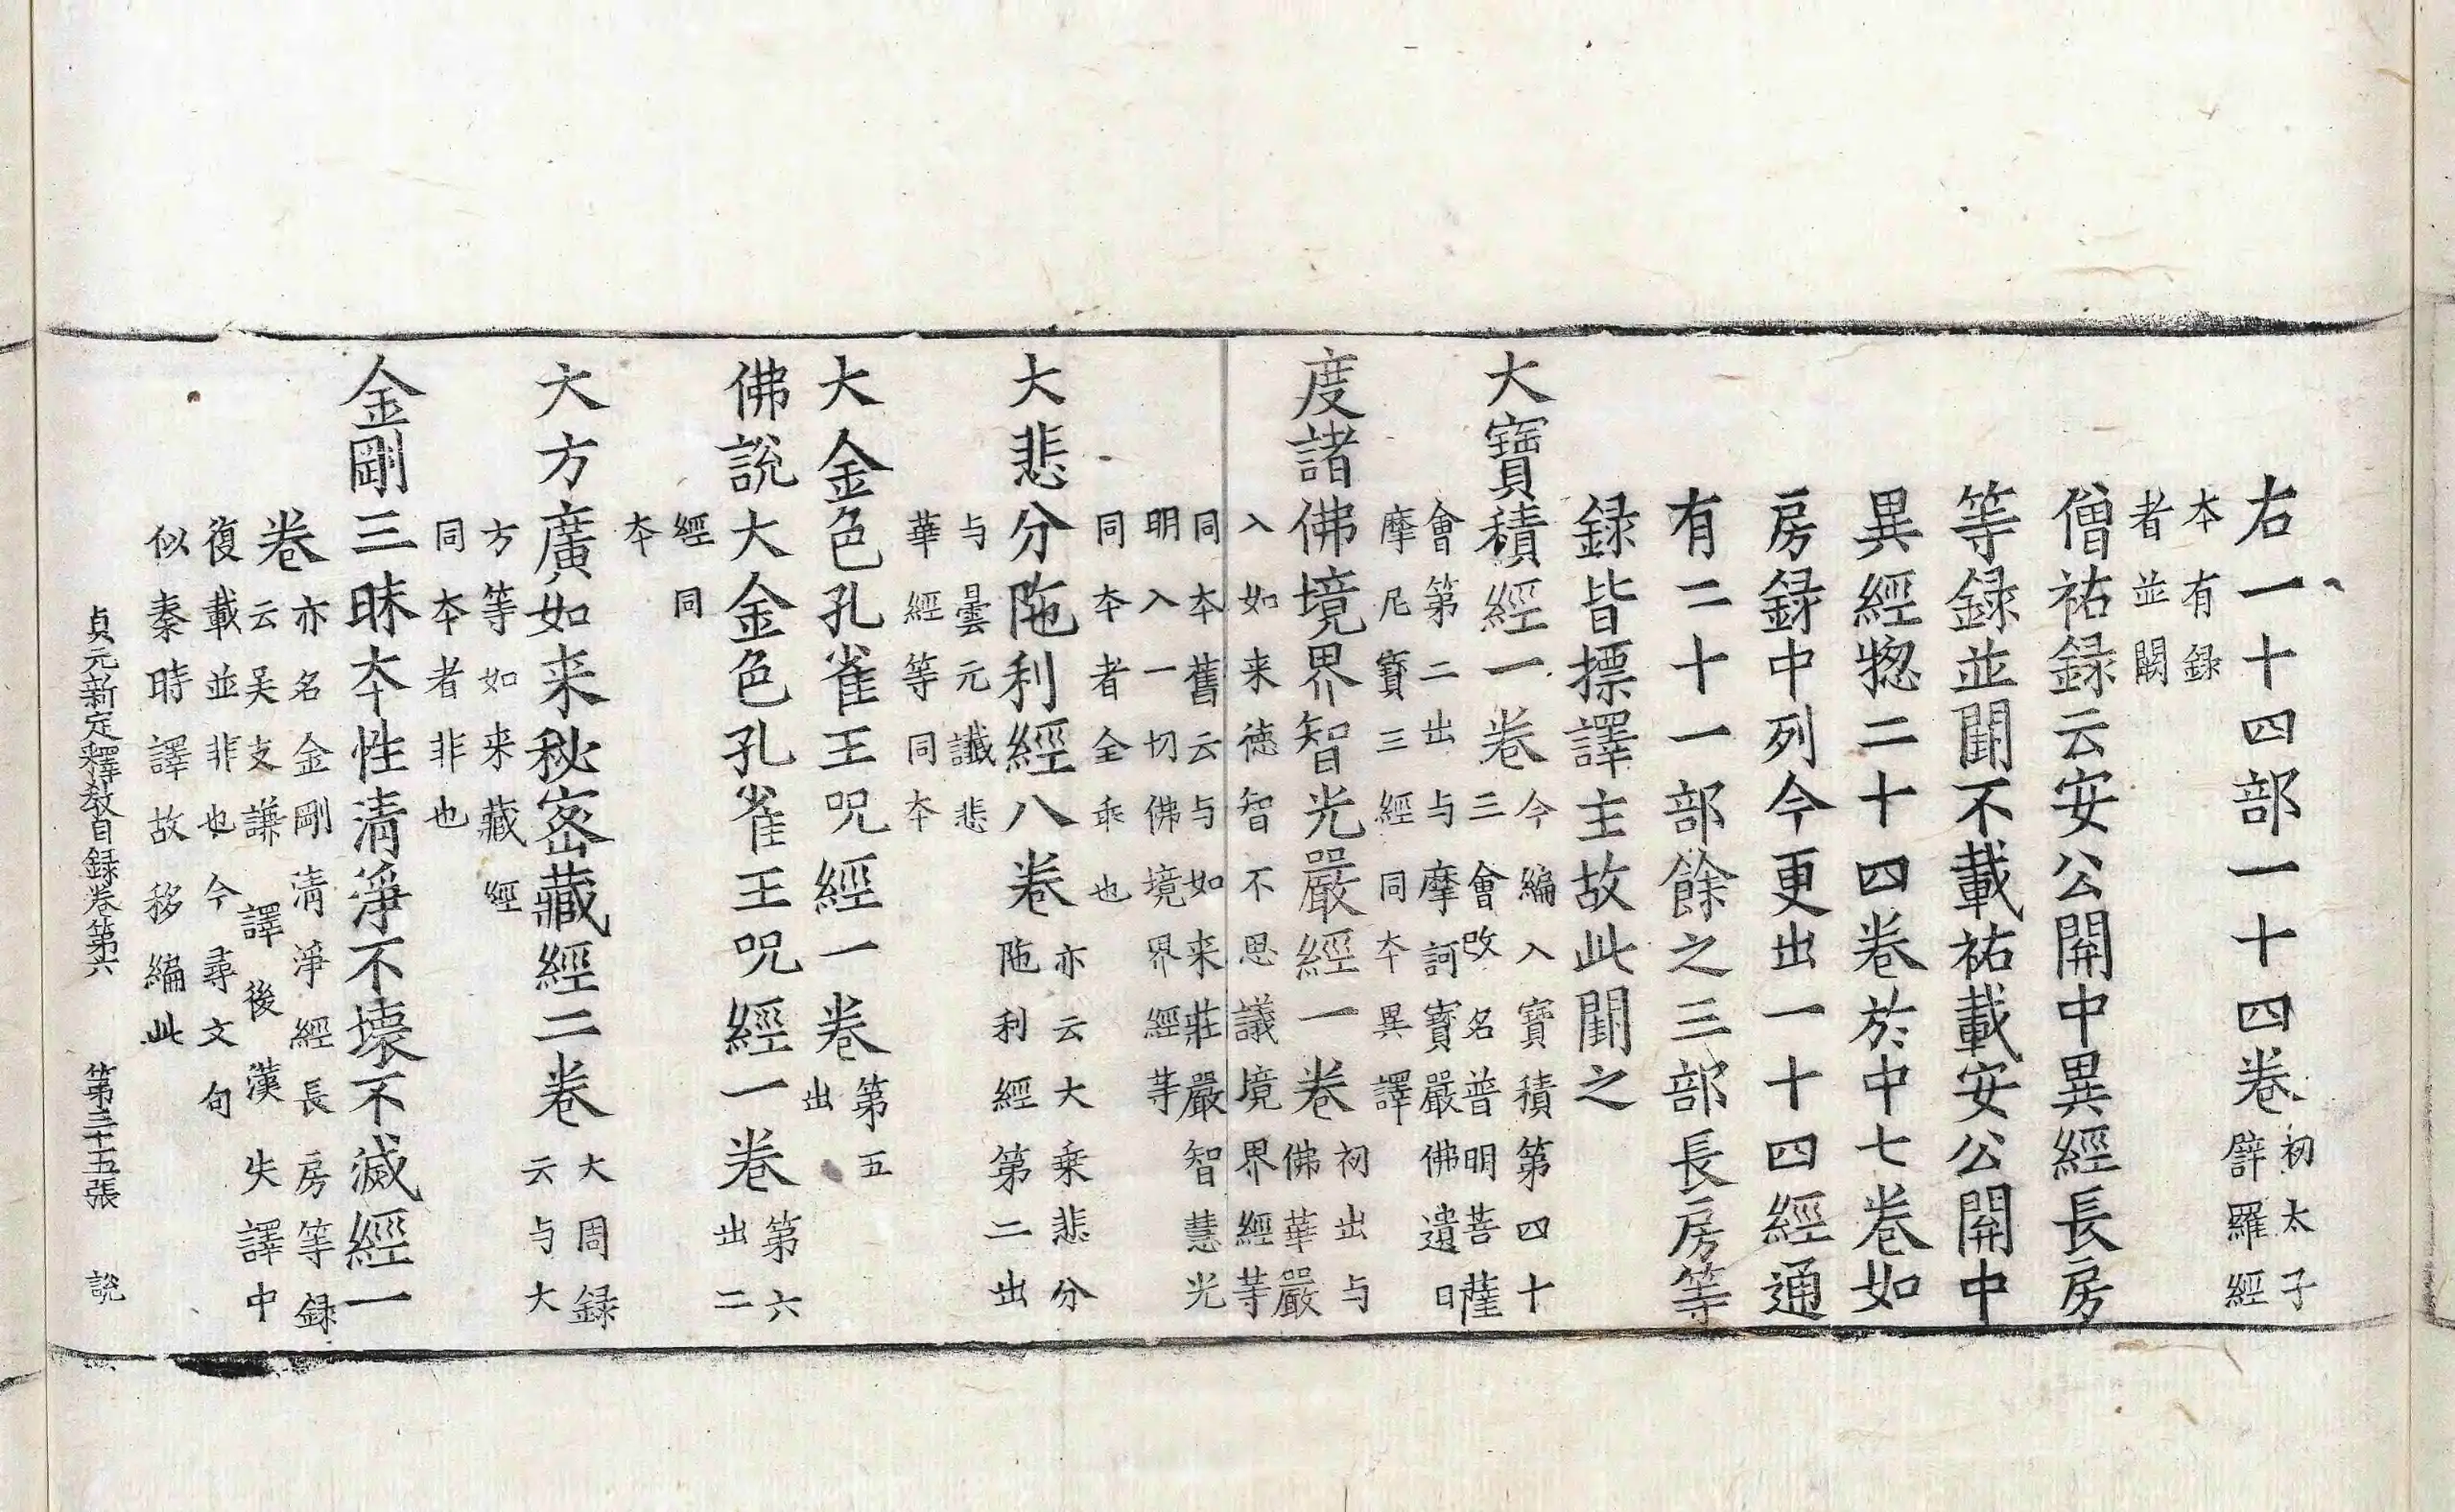 右一十四部一十四卷初太子
辟羅經
本有録
者並闕
僧祐録云安公開中異經長房
等録並闕不載祐載安公開中
異經惣二十四卷於中七卷如
房録中列今更出一十四經通
有二十一部餘之三部長房等
録皆摽譯主故此闕之
大寶積經一卷今編入寶積第四十
三會改名普明菩薩
會第二出与摩訶寶嚴佛遺日
摩尼寶三經同本異譯
度諸佛境界智光嚴經一卷初出与
佛華嚴
入如来徳智不思議境界經等
同本舊云与如来莊嚴智慧光
明入一切佛境界經等
同本者全乖也
大悲分陁利經八卷亦云大乗悲分
陁利經第二出
与曇无讖悲
華經等同本
大金色孔雀王呪經一卷第五
出
佛說大金色孔雀王呪經一卷第六
出二
經同
本
大方廣如来秘密藏經二卷大周録
云与大
方等如来藏經
同本者非也
金剛三昧本性清淨不壞不滅經一
卷亦名金剛清淨經長房等録
云吴支謙譯後漢失譯中
復載並非也今尋文句
似秦時譯故移編此
貞元新定釋教目録卷第六 第三十五張 說